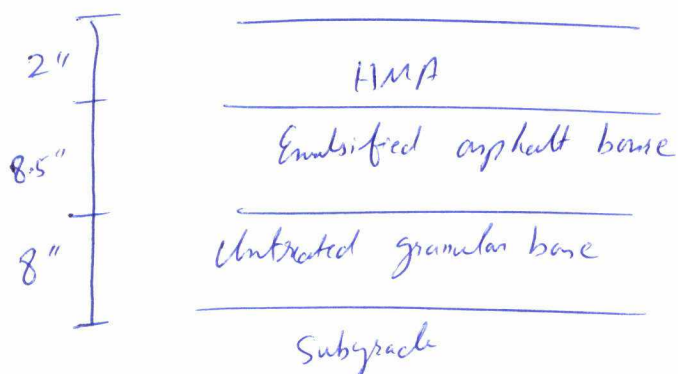 2"
HMA
8.5"
Emulsified asphalt base
8"
Untreated granular base
Subgrade